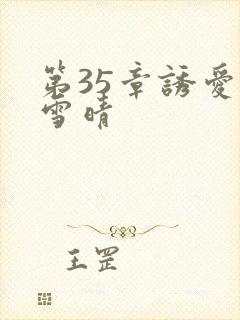 第35章誘愛
雪晴
王罡